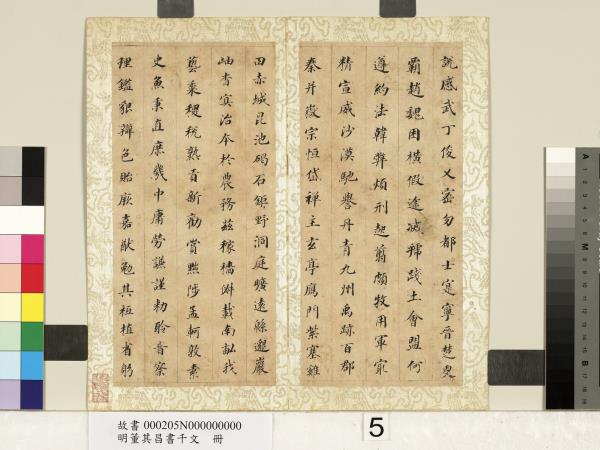 說感武丁俊乂密勿都士寔寧晉楚更
霸趙魏困橫假途滅虢踐土會盟何
遵約法韓弊煩刑起翦頗牧用軍冣
精宣威沙漠馳譽丹青九州禹跡百郡
秦并嶽宗恒岱禪主玄亭鴈門紫塞雞
田赤城昆池碣石鉅野洞庭曠遠緜邈巖
岫杳冥治本於農務茲稼穡俶載南畝我
藝黍稷稅熟貢新勸賞黜陟孟軻敦素
史魚秉直庶幾中庸勞謙謹勅聆音察
理鑑貌辯色貽厥嘉猷勉其祗植省躬
故書 000205N000000000
明董其昌書千文 冊
5
A
M
B